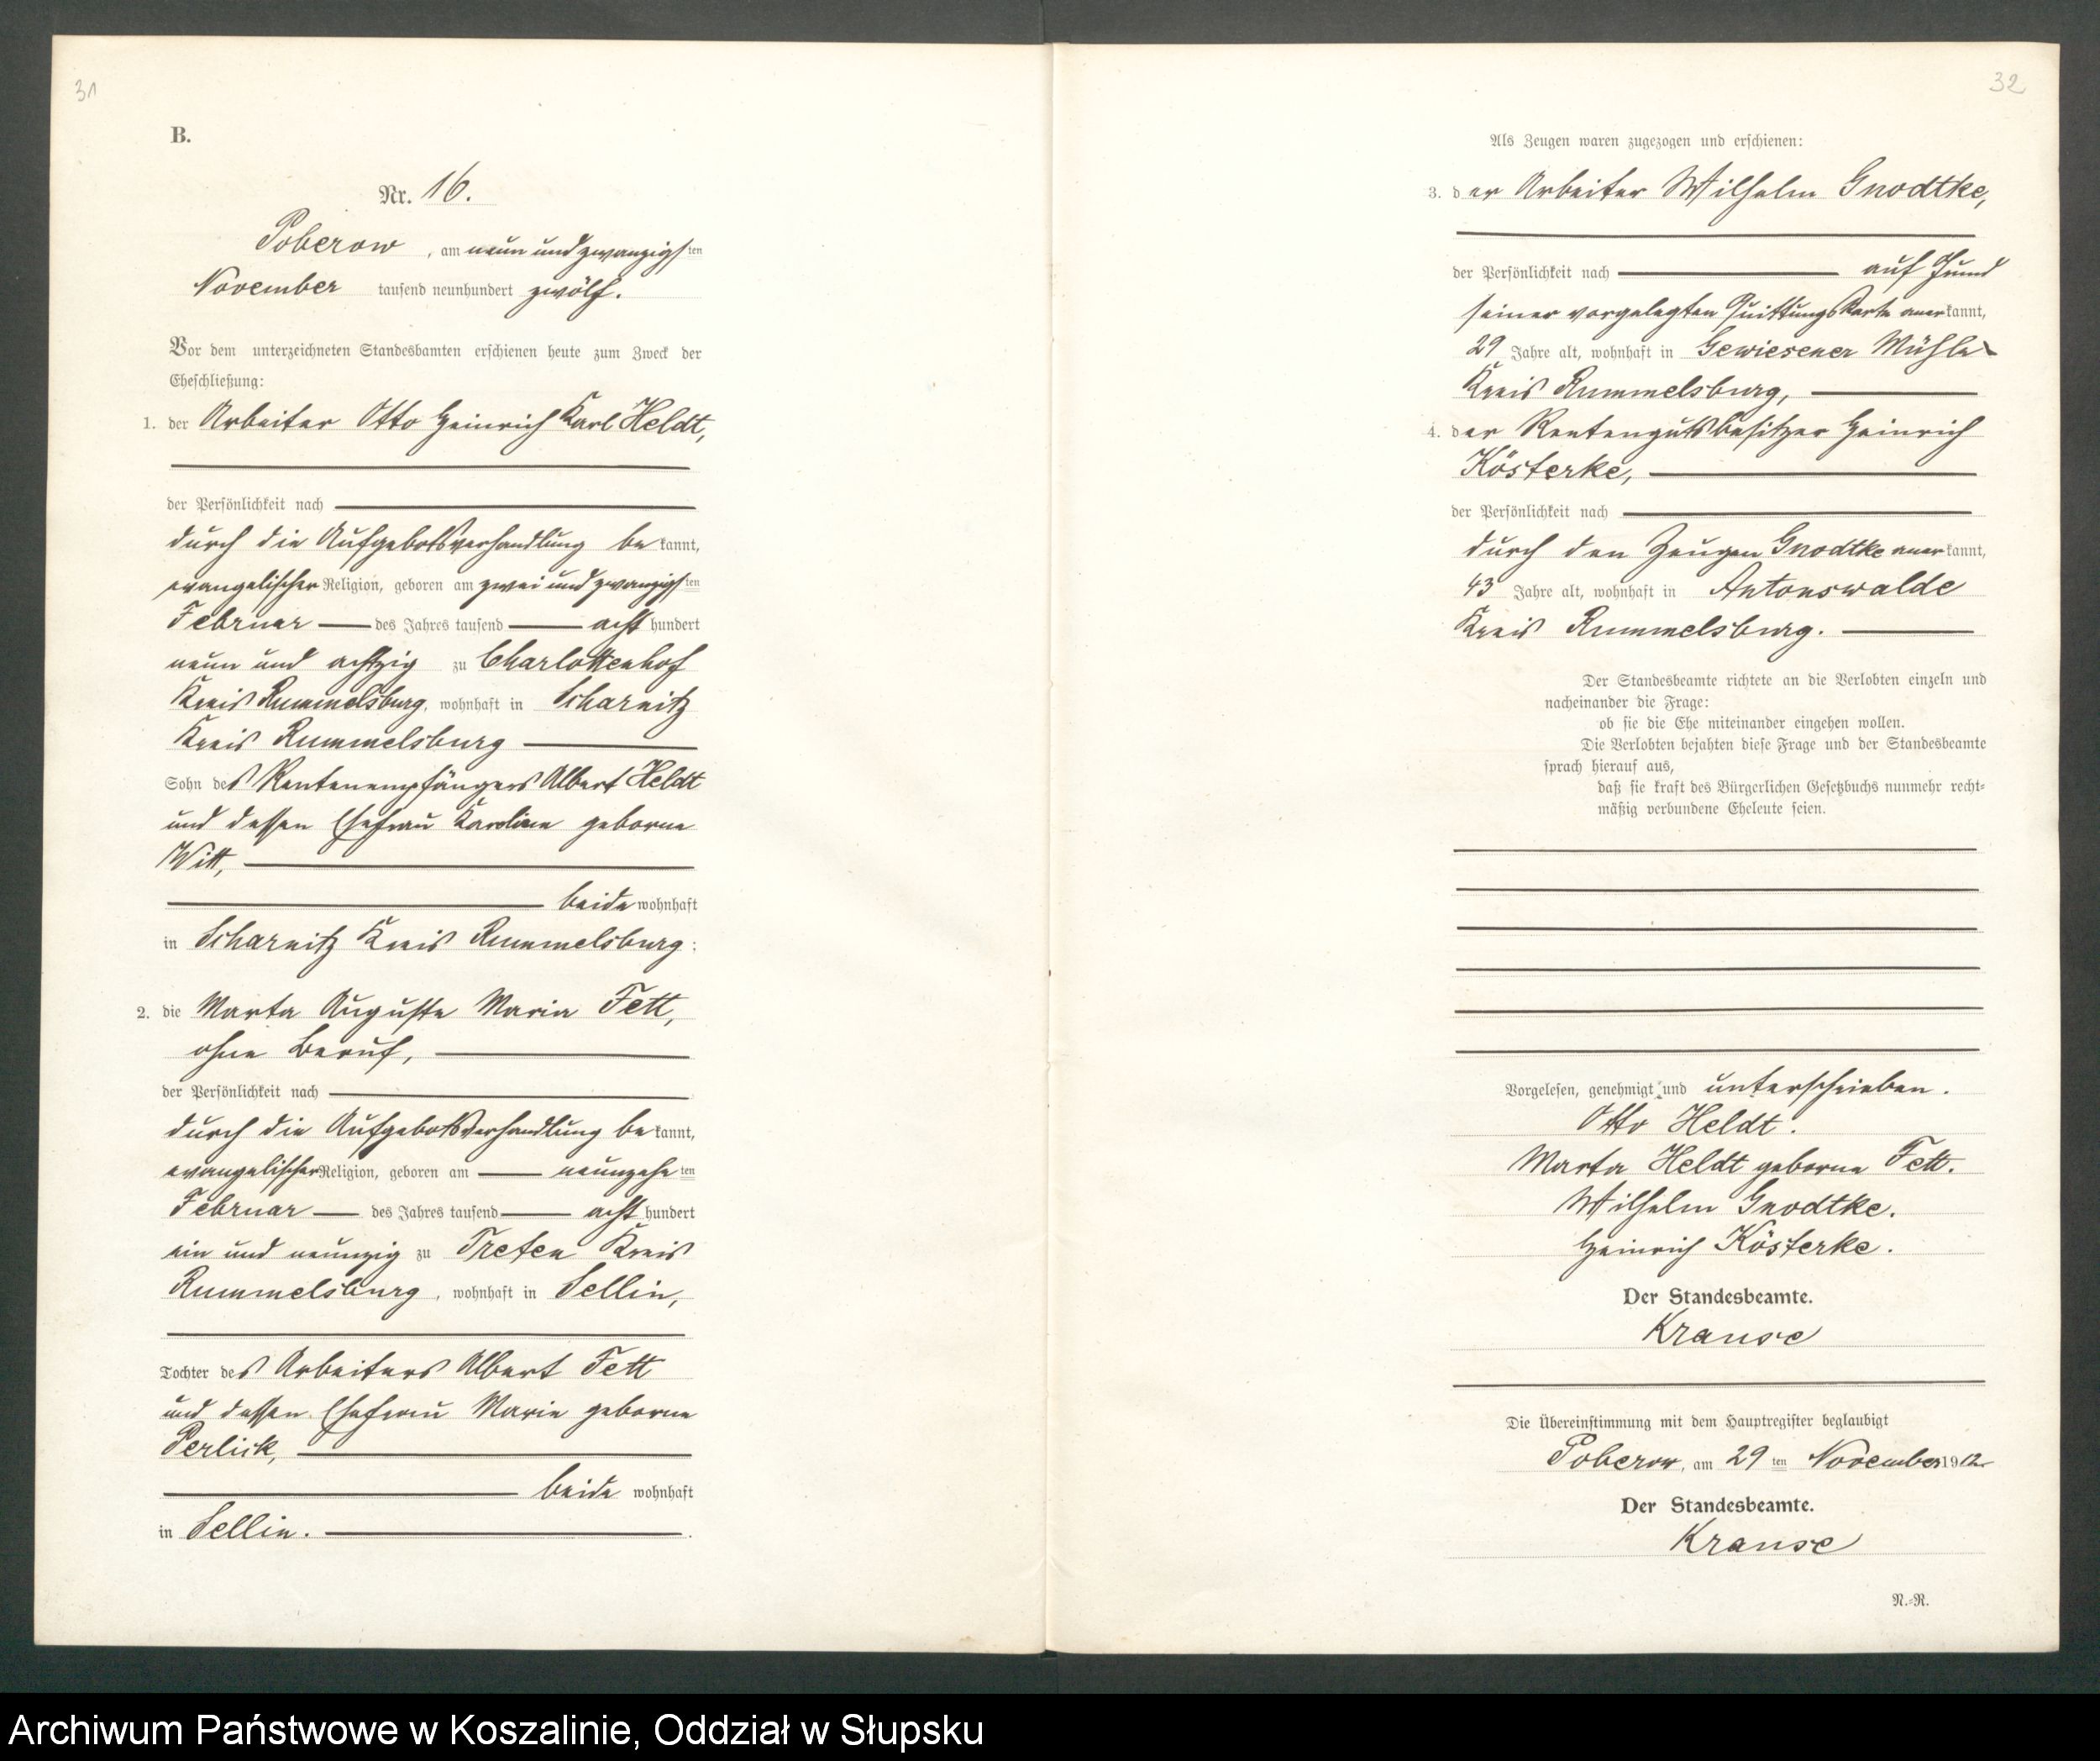 31
B.
Nr. 16.
Poberow, am neun und zwanzigsten
November tausend neunhundert zwölf.
Vor dem unterzeichneten Standesbamten erschienen heute zum Zweck der
Eheschließung:
1. der Arbeiter Otto Heinrich Karl Heldt,
der Persönlichkeit nach
durch die Aufgebotsverhandlung bekannt,
evangelischer Religion, geboren am zwei und zwanzigsten
Februar des Jahres tausend acht hundert
neun und achtzig zu Charlottenhof
Kreis Rummelsburg, wohnhaft in Scharnitz
Kreis Rummelsburg
Sohn des Rentenempfängers Albert Heldt
und dessen Ehefrau Karoline geborne
Witt,
beide wohnhaft
in Scharnitz Kreis Rummelsburg;
2. die Marta Auguste Marie Fett,
ohne Beruf,
der Persönlichkeit nach
durch die Aufgebotsverhandlung bekannt,
evangelischer Religion, geboren am neunzehnten
Februar des Jahres tausend acht hundert
ein und neunzig zu Treten Kreis
Rummelsburg, wohnhaft in Sellin,
Tochter des Arbeiters Albert Fett
und dessen Ehefrau Marie geborne
Perlick,
beide wohnhaft
in Sellin.
32
Als Zeugen waren zugezogen und erschienen:
3. der Arbeiter Wilhelm Gnodtke,
der Persönlichkeit nach auf Grund
seiner vorgelegten Quittungskarte anerkannt,
29 Jahre alt, wohnhaft in Gewiesener Mühle
Kreis Rummelsburg,
4. der Rentengutsbesitzer Heinrich
Kösterke,
der Persönlichkeit nach
durch den Zeugen Gnodtke anerkannt,
43 Jahre alt, wohnhaft in Antonswalde
Kreis Rummelsburg.
Der Standesbeamte richtete an die Verlobten einzeln und
nacheinander die Frage:
ob sie die Ehe miteinander eingehen wollen.
Die Verlobten bejahten diese Frage und der Standesbeamte
sprach hierauf aus,
daß sie kraft des Bürgerlichen Gesetzbuchs nunmehr recht-
mäßig verbundene Eheleute seien.
Vorgelesen, genehmigt und unterschrieben.
Otto Heldt.
Marta Heldt geborne Fett.
Wilhelm Gnodtke.
Heinrich Kösterke.
Der Standesbeamte.
Krause
Die Übereinstimmung mit dem Hauptregister beglaubigt
Poberow, am 29 ten November 1912
Der Standesbeamte.
Krause
N.-R.
Archiwum Państwowe w Koszalinie, Oddział w Słupsku